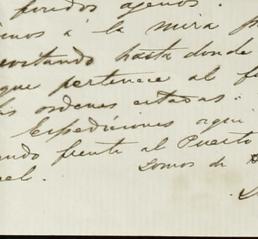 fondos agenos.
á la mira
evitando hasta donde
que pertenece al
ordenes citadas:
Expediciones aqui
frente al Puerto
somos de